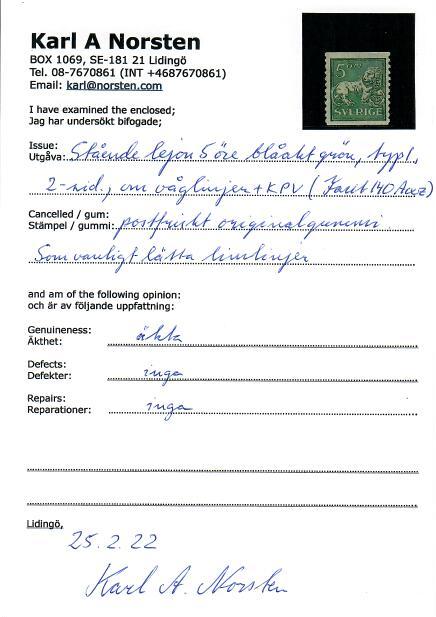 Karl A Norsten
BOX 1069, SE-181 21 Lidingö
Tel. 08-7670861 (INT +4687670861)
Email: karl@norsten.com
5 ÖRE
SVERIGE
I have examined the enclosed;
Jag har undersökt bifogade;
Issue:
Utgåva: Stående lejon 5 öre blåakt grön, typ I,
2-sid., vm våglinjer + KPV (Facit 140Acxz)
Cancelled / gum:
Stämpel / gummi: postfriskt originalgummi
Som vanligt lätta limlinjer
and am of the following opinion:
och är av följande uppfattning:
Genuineness:
Äkthet: äkta
Defects:
Defekter: inga
Repairs:
Reparationer: inga
Lidingö,
25.2.22
Karl A. Norsten